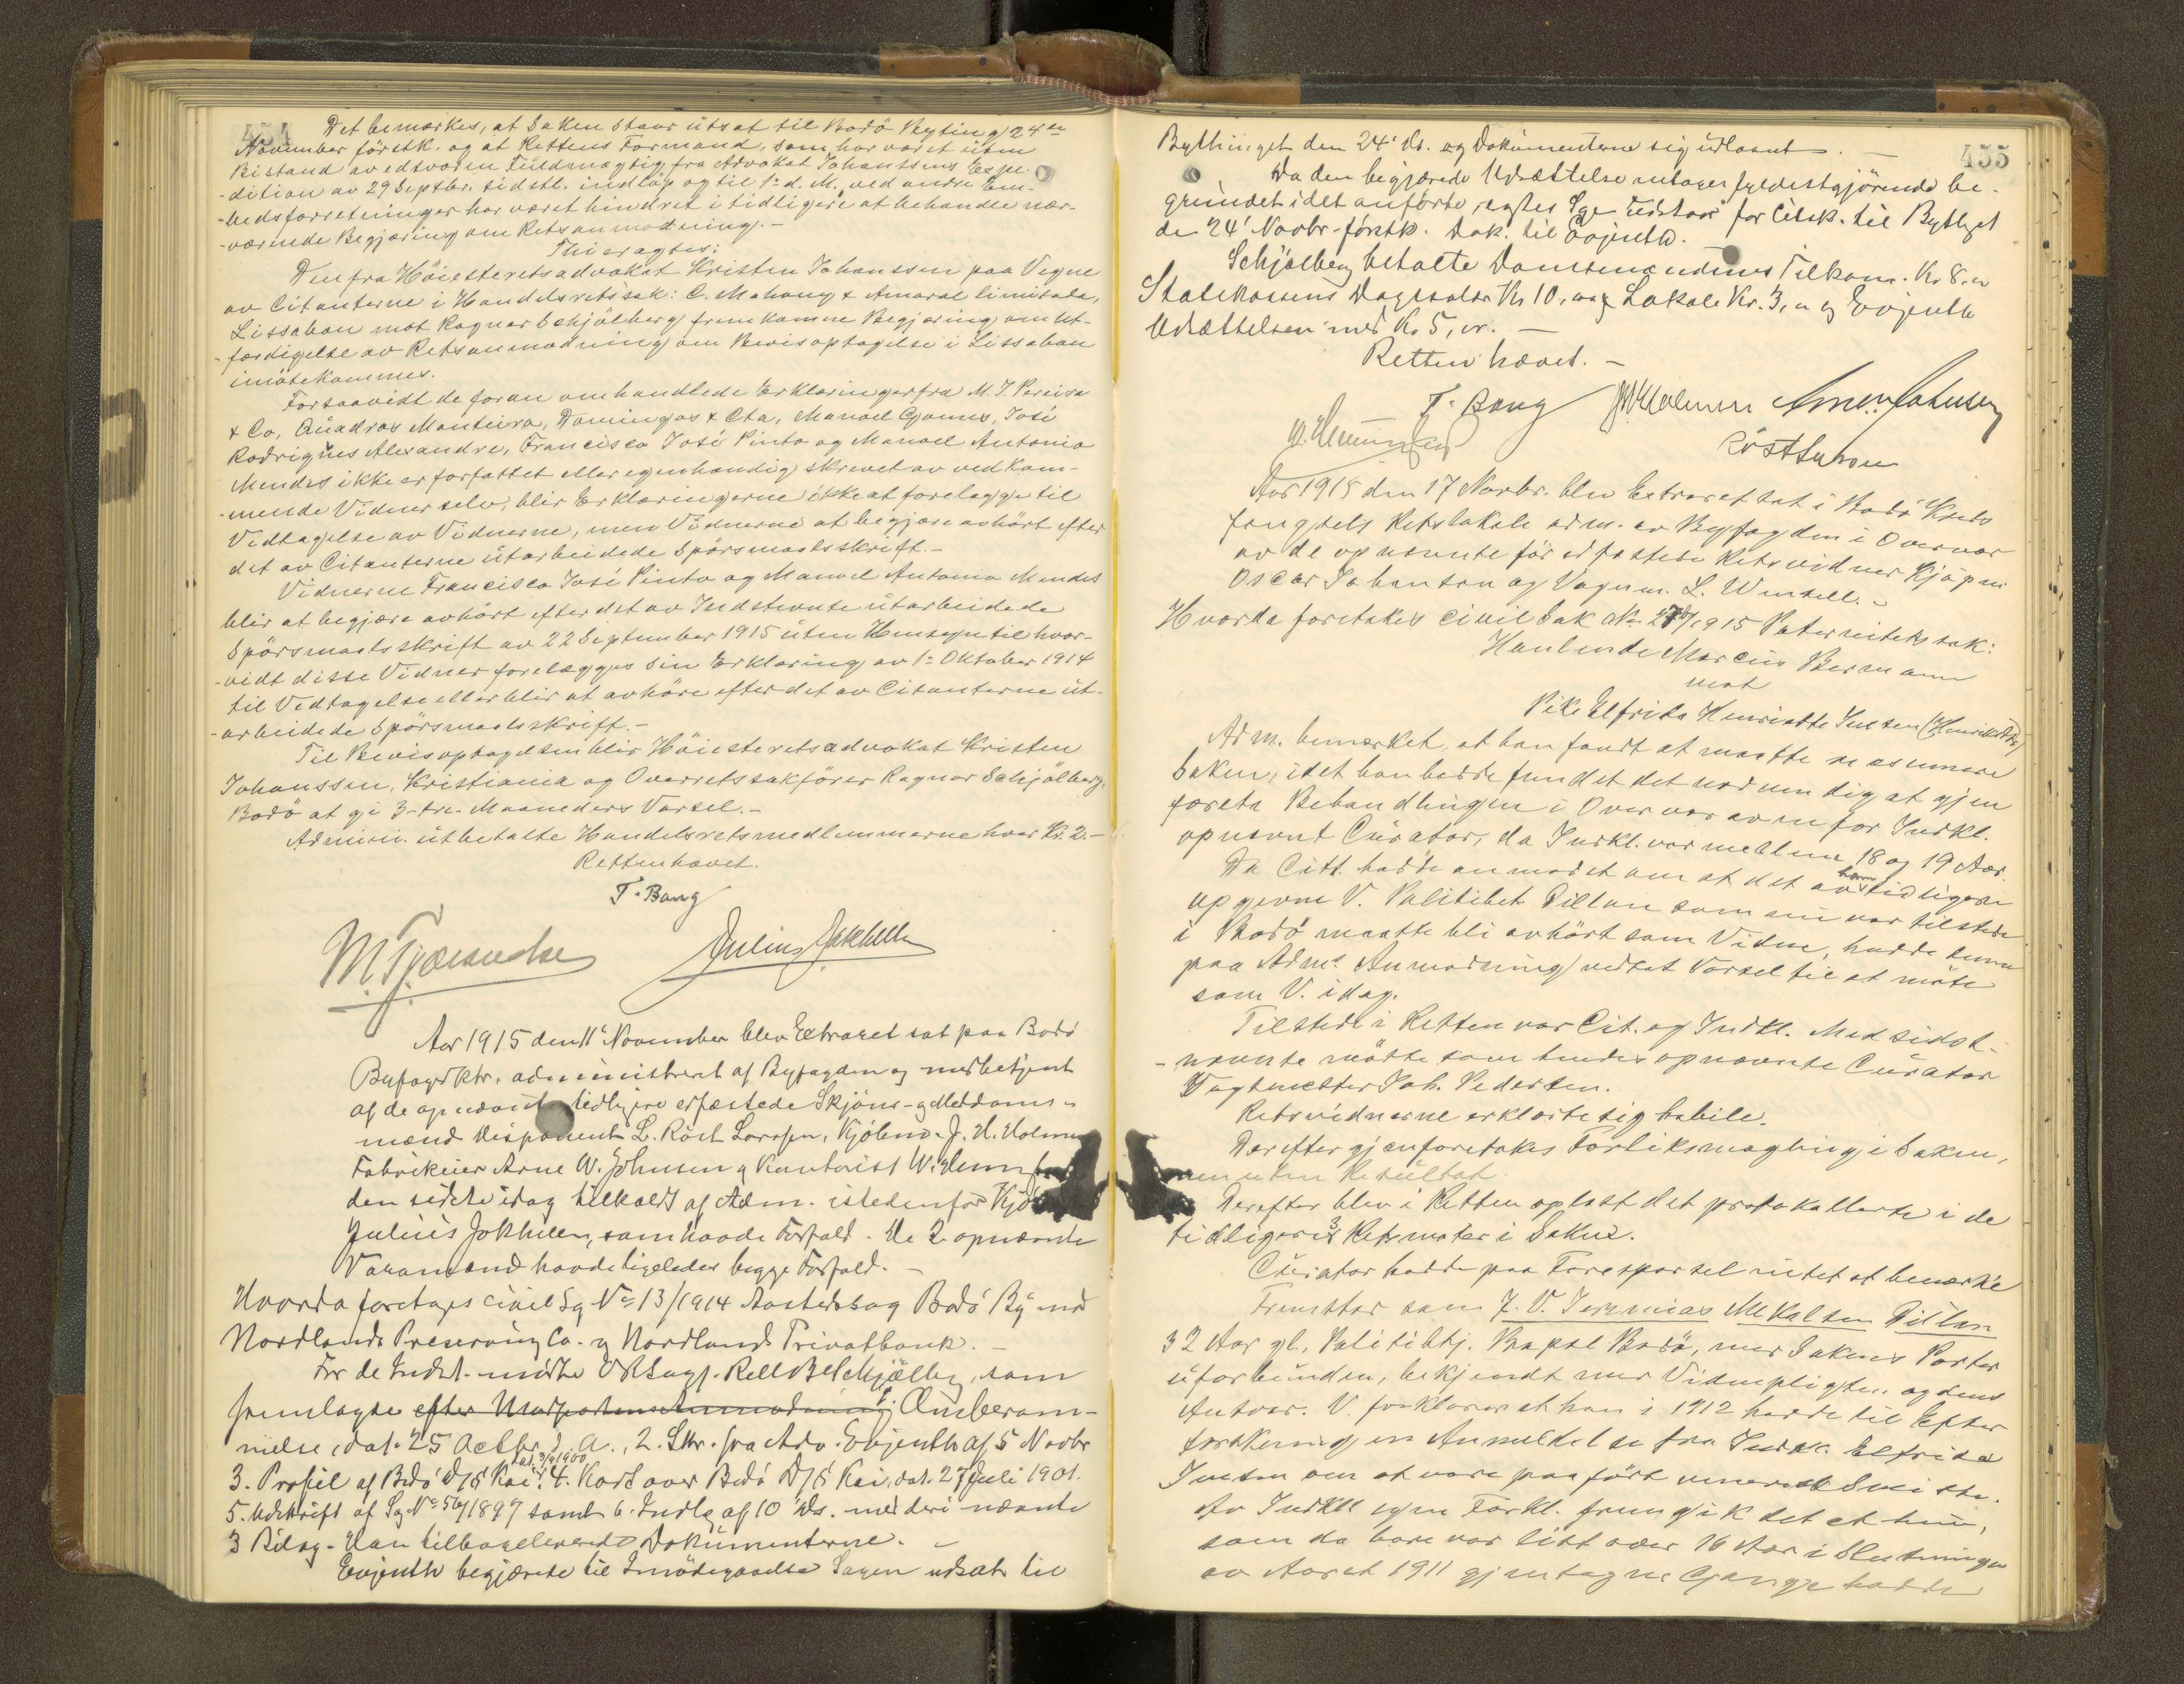 454
Det bemærkes, at Saken staar utsat til Bodö Byting 24de
November förstk. og at Rettens Formand, som har været uten
Bistand av edsvoren Fuldmægtig fra Advokat Johanssens Expe-
-dition av 29 Septbr. sidstl. indløp og til 1ste d. M. ved andre Em-
-bedsforretninger har været hindret i tidligere at behandle nær-
-værende Begjæring om Retsanmodning.-
Thi eragtes:
Den fra Höiesteretsadvokat Kristen Johanssen paa Vegne
av Citanterne i Handelsretssak: C. Mahony & Amaral limitada,
Lissabon mot Ragnar Schjölberg fremkomne Begjæring om Ut-
-færdigelse av Retsanmodning om Bevisoptagelse i Lissabon
imötekommes.
Forsaavidt de foran omhandlede Erklæringer fra M. J. Pereira
& Co, Quadros Monteiro, Domingos & Cta, Manoel Gomes, José
Rodrigues Alexandre, Francisco José Pinto og Manoel Antonio
Mendes ikke er forfattet eller egenhændig skrevet av vedkom-
-mende Vidner selv, blir Erklæringerne ikke at forelægge til
Vedtagelse av Vidnerne, men Vidnerne at begjære avhört efter
det av Citanterne utarbeidede Spörsmaalsskrift.-
Vidnerne Francisco José Pinto og Manoel Antonio Mendes
blir at begjære avhört efter det av Indstevnte utarbeidede
Spörsmaalsskrift av 22 September 1915 uten Hensyn til hvor-
-vidt disse Vidner forelægges sin Erklæring av 1ste Oktober 1914
til Vedtagelse eller blir at avhöre efter det av Citanterne ut-
-arbeidede Spörsmaalsskrift.-
Til Bevisoptagelsen blir Höiesteretsadvokat Kristen
Johanssen, Kristiania og Overretssakförer Ragnar Schjölberg,
Bodö at gi 3-tre- Maaneders Varsel.-
Admin. utbetalte Handelsretsmedlemmerne hver Kr. 2.-
Retten hævet.
T. Bang
M. Tjærandsen Julius Jakhelln
Aar 1915 den 11te November blev Extraret sat paa Bodö
Byfogdktr. administreret af Byfogden og medbetjent
af de opnævnte tidligere edfæstede Skjöns- og Meddoms-
mænd Disponent L. Röst Larssen, Kjöbm. J. H. Holmen
Fabrikeier Arne W. Johnsen og Kontorist W.
den sidste idag tilkaldt af Adm. istedenfor Kjö
Julius Jakhelln, som havde Forfald. De 2 opnævnte
Varamænd havde ligeledes begge Forfald.-
Hvorda foretages civil Sg No 13/1914 Aastedssag Bodö By md
Nordlands Preserving Co. og Nordlands Privatbank.-
For de Indst. mödte ORSagf. Schjølberg, som
fremlagde efter Modpartens Anmodning 1. Omberam-
melse, dat. 25 Octbr. d. A., 2. Skr. fra Adv. Evjenth af 5 Novbr
3. Profil af Bodö D/S Kai, 4. Kart over Bodö D/S Kai, dat. 27 Juli 1901.
5. Udskrift af Sg No 56/1897 samt 6. Indlg af 10 ds. med deri nævnte
3 Bilag. Han tilbageleverede Dokumenterne.-
Evjenth begjærede til Imödegaaelse Sagen udsat til
455
Bythinget den 24' ds. og Dokumenterne sig udlaant.-
Da den begjærede Udsættelse antages fyldestgjörende be-
grundet i det anförte, eragtes Sgn Udstaar for Citsk. til Bythget
den 24' Novbr. förstk. Dok. til Evjenth.
Schjölberg betalte Domsmændenes Tilkom. Kr 8,00
Statskassens Dagssalær Kr 10,00 og Lokale Kr. 3,00 og Evjenth
Udsættelsen med Kr 5,00.-
Retten hævet.-
T. Bang JHHolmen Arne W Johnsen
Röst Larssen
Aar 1915 den 17 Novbr. blev Extraret sat i Bodö Kreds
fængsels Retslokale adm. av Byfogden i Overvær
av de opnævnte för edfæstede Retsvidner Kjöpm
Oscar Johansen og Vognm. L. Wensell.-
Hvorda foretokes civil Sak No 27/1915 Paternitetssak:
Handlende Marcus Bermann
mot
Pike Elfrida Henriette Jensen (Henriksen)
Adm. bemærket, at han fandt at maatte reassumere
Saken, idet han hadde fundet det nødvendig at gjen
foreta Behandlingen i Overvær av en for Indkl.
opnævnt Curator, da Indkl. var mellem 18 og 19 Aar.
Da Citt. hadde anmodet om at det av ham tidligere
opgivne V. Politibet. Dillan som nu var tilstede
i Bodö maatte bli avhört som Vidne, hadde denne
paa Adm.s Anmodning vedtat Varsel til at möte
som V. idag.
Tilstede i Retten var Cit. og Indkl. Med sidst-
-nævnte mötte som hendes opnævnte Curator
Vagtmester Joh. Pedersen.
Retsvidnerne erklærte sig habile.
Derefter gjenforetokes Forliksmægling i Saken,
men uten Resultat.
Derefter blev i Retten oplæst det protokollerte i de
tidligere 3 Retsmöter i Saken.
Curator hadde paa Forespørsel intet at bemærke
Fremstod som 7. V. Jeremias Mikalsen Dillan
32 Aar gl. Politibtj. Bopæl Bodö, med Sakens Parter
uforbunden, bekjendt med Vidnepligten og dens
Ansvar. V. forklarer at han i 1912 hadde til Efter
forskning en Anmeldelse fra Indkl. Elfrida
Jensen om at være paafört venerisk Smitte.
Av Indkl egen Forkl. fremgik det at hun,
som da bare var litt over 16 Aar i Slutningen
av Aaret 1911 gjentagne Gange hadde